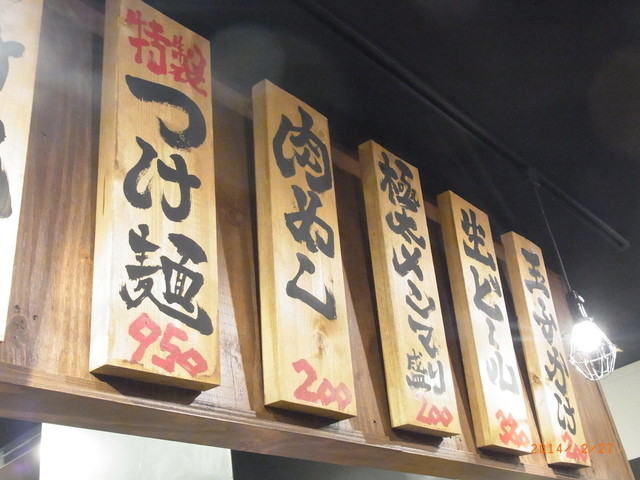 特製
つけ麺
950
肉めし
200
極太メンマ増
200
生ビール
380
玉子かけ
2014/12/27